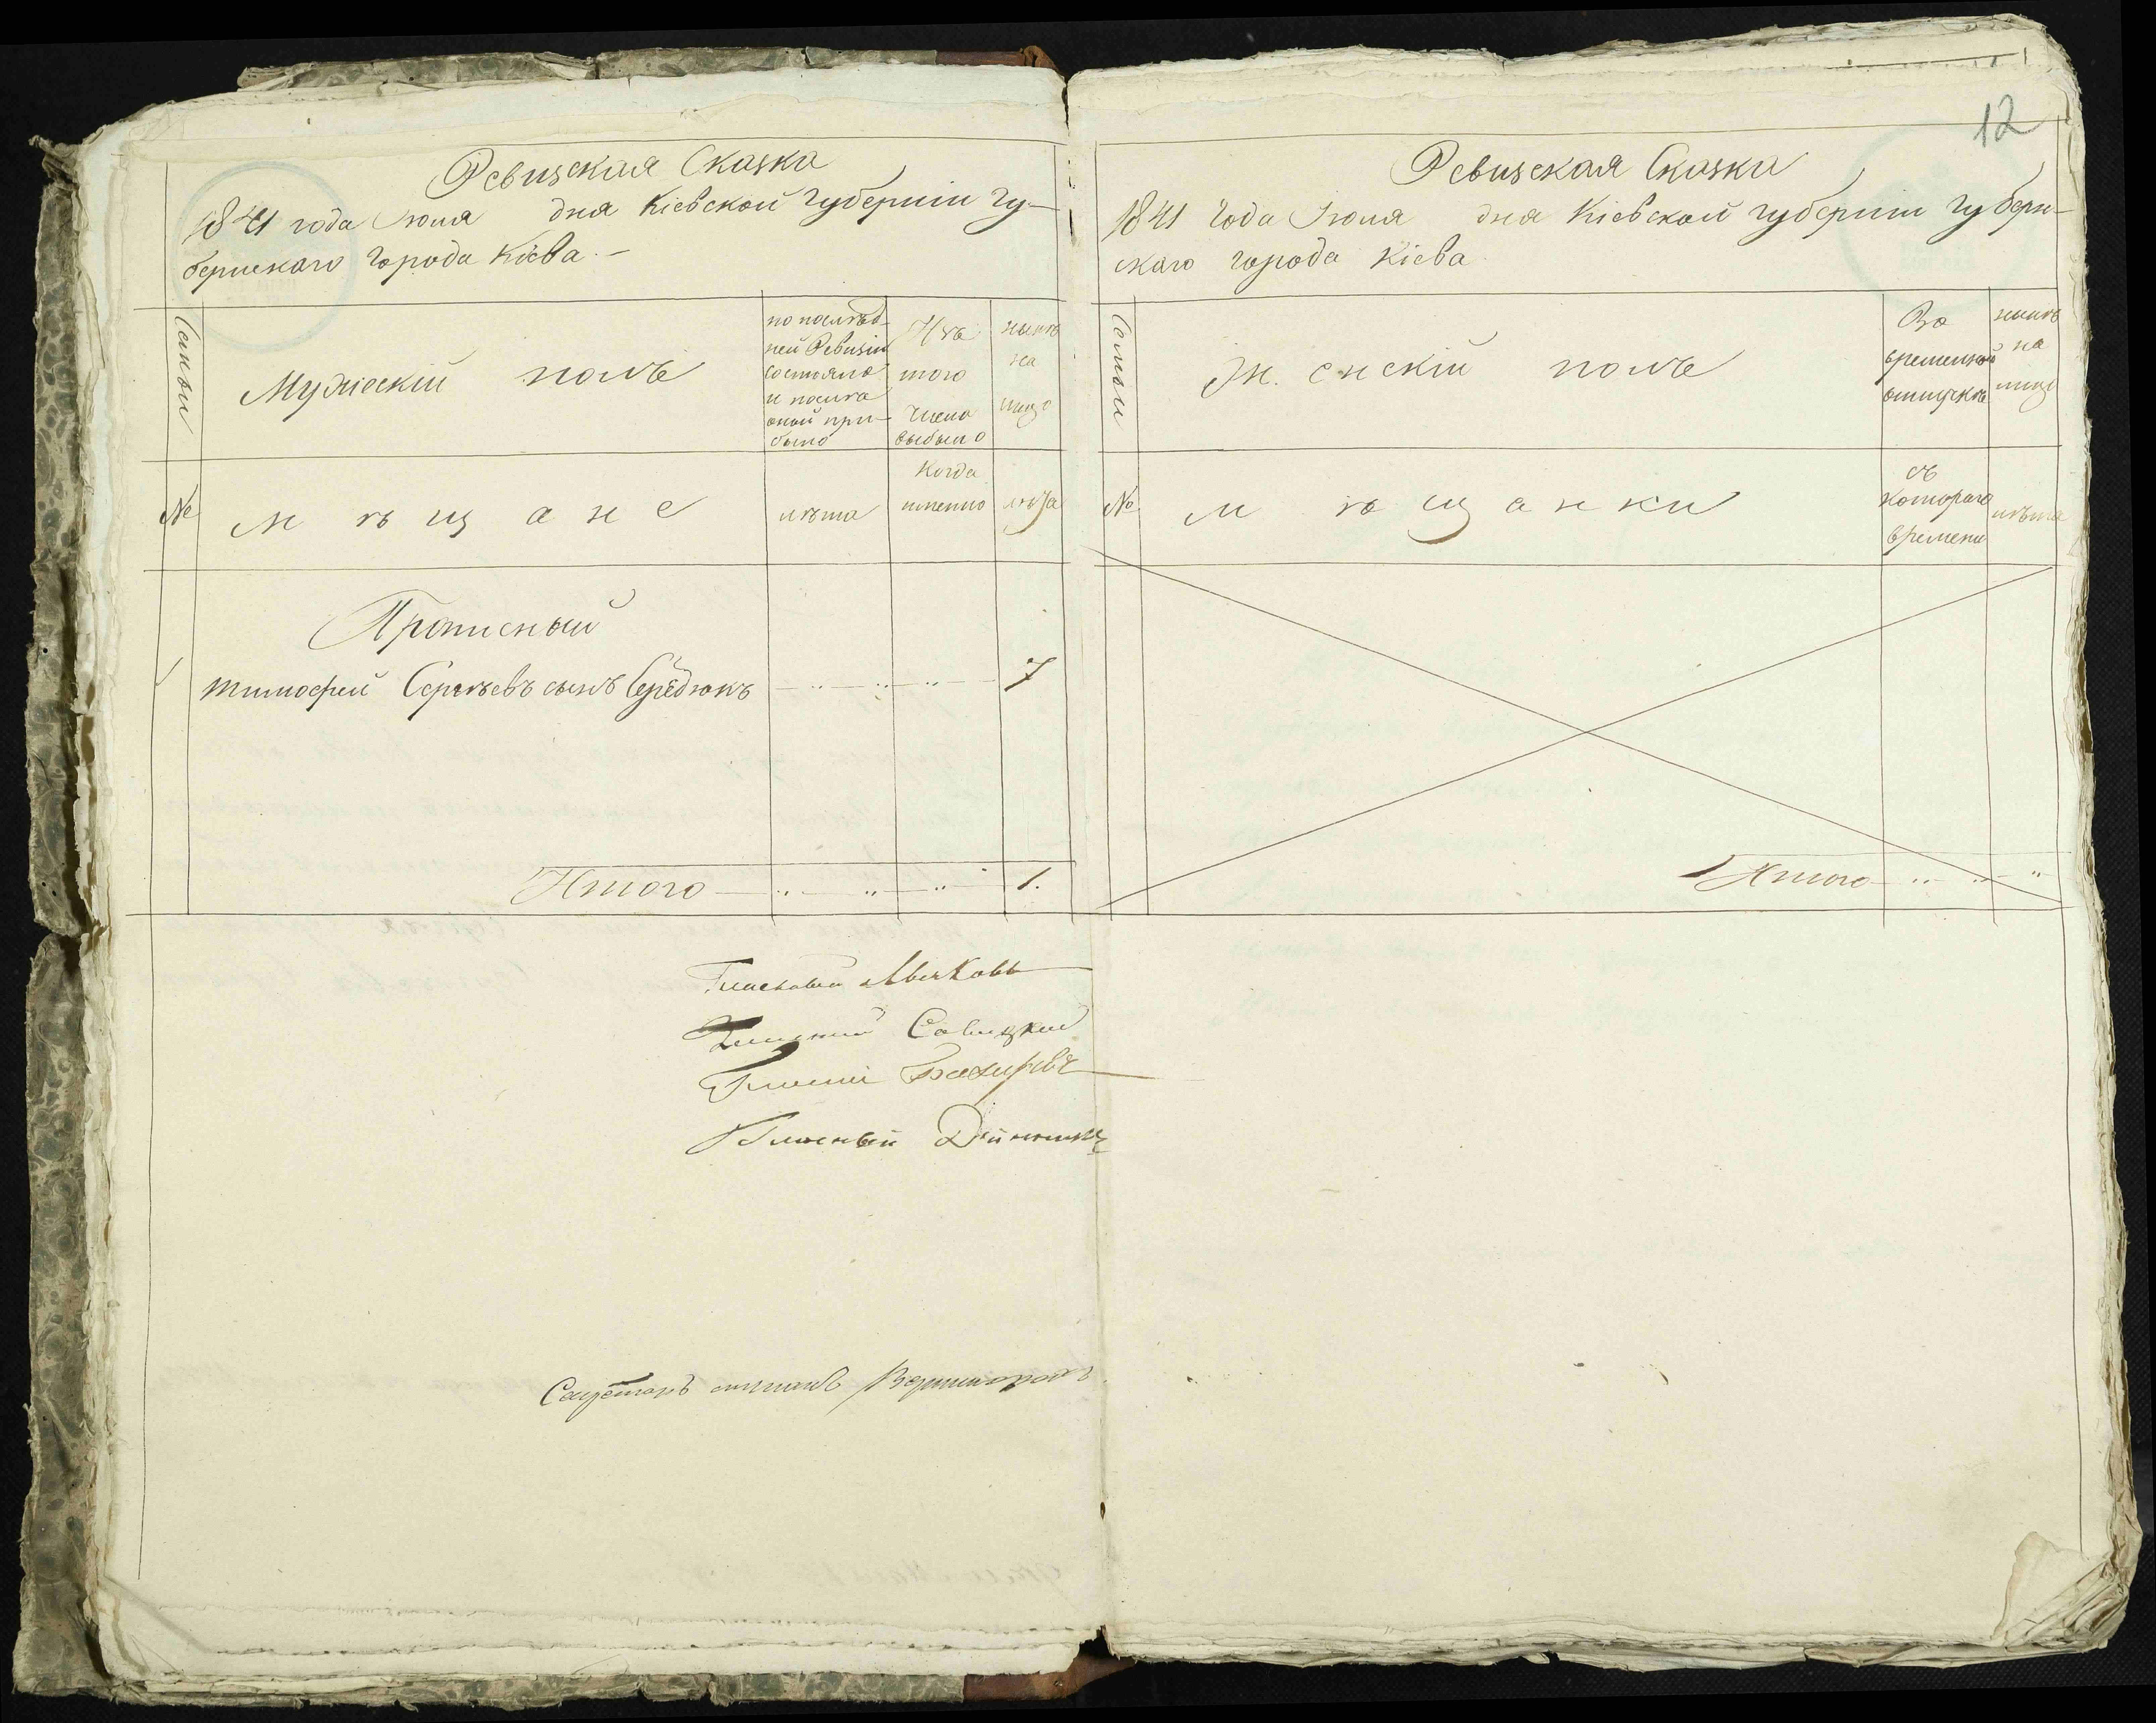 Ревизская Сказка
1841 года Июля дня Кіевской губерніи гу-
бернскаго города Кіева. –
Семьи
Мужескій полъ
по послѣд-
ней Ревизіи
состояло
и послѣ
оной при-
было
Изъ
того
числа
выбыло
нынѣ
на
лицо
№
мѣщане
лѣта
Когда
именно
лѣта
Прописный
1
Тимофей Сергѣевъ сынъ Середюкъ
7
Итого
1.
Гласный
Гласный Савицкий
Гласный
Гласный
12
Ревизская Сказка
1841 года Июля дня Кіевской губерніи губерн-
скаго города Кіева
Семьи
Женскій полъ
Во
временной
отлучкѣ
нынѣ
на
лицо
№
мѣщанки
съ
котораго
времени
лѣта
Итого